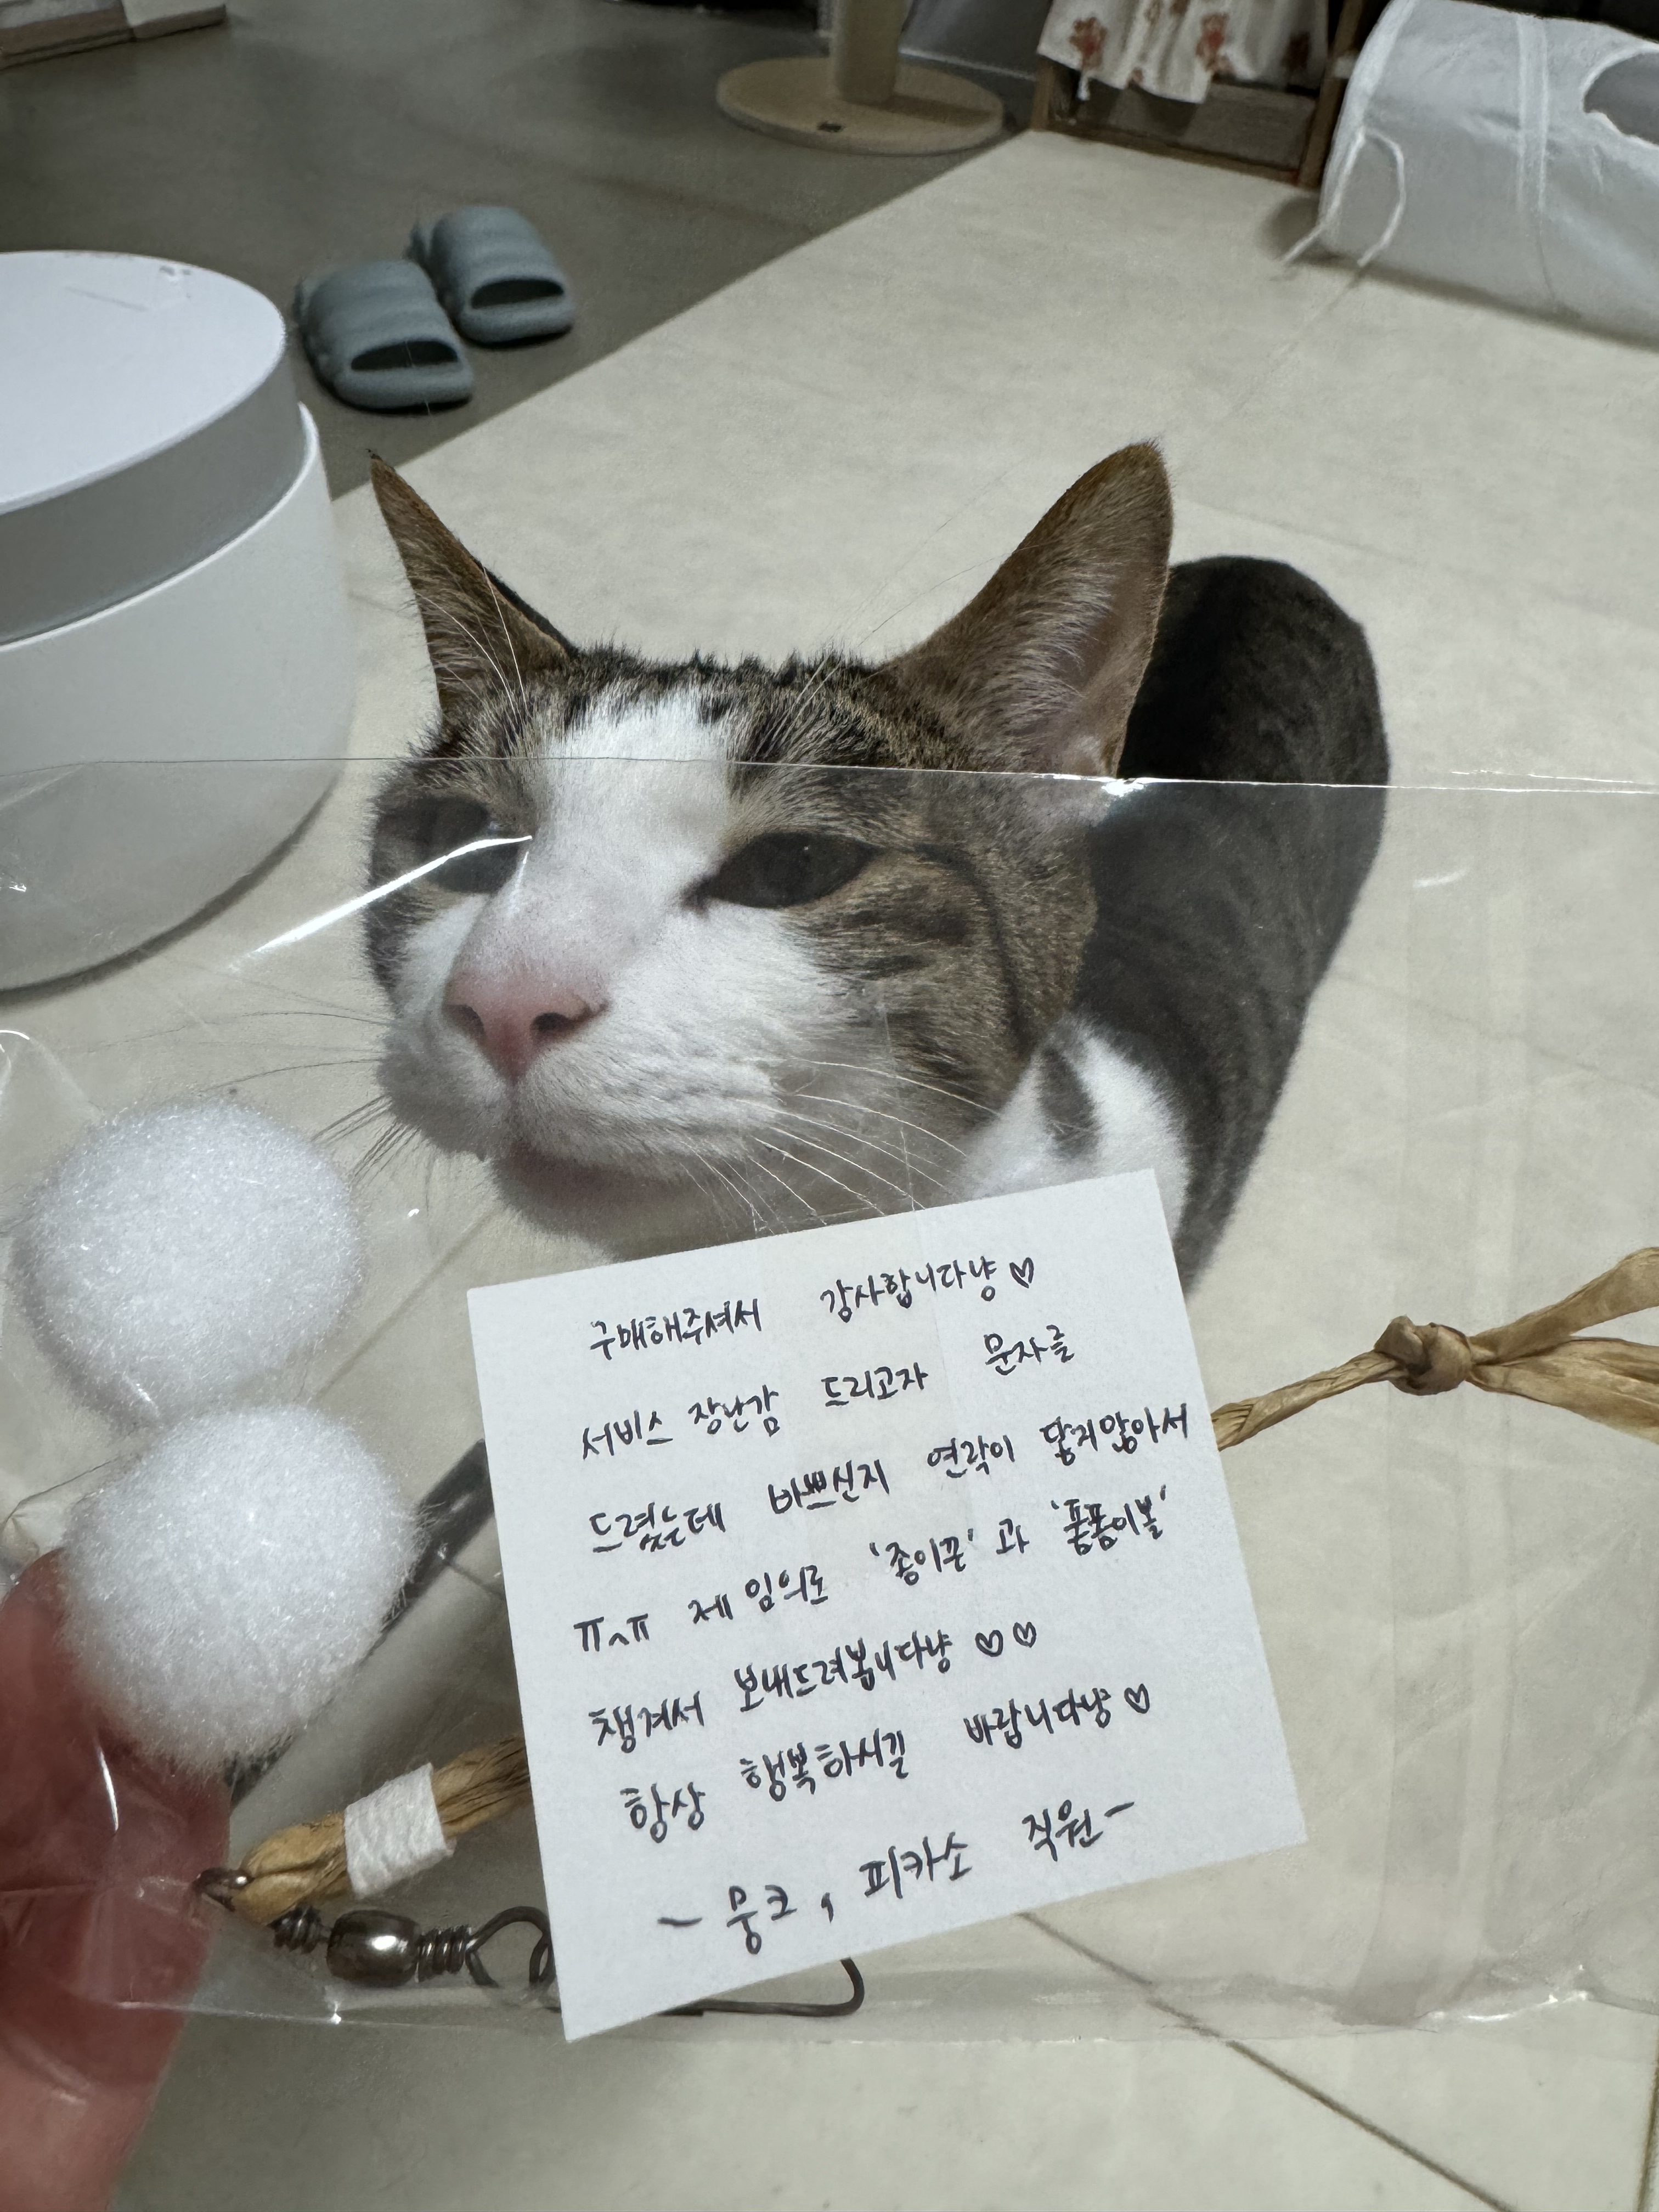 구매해주셔서 감사합니다냥♡
서비스 장난감 드리고자 문자를
드렸는데 바쁘신지 연락이 닿지않아서
ㅠㅅㅠ 제 임의로 '종이끈'과 '폼폼이볼'
챙겨서 보내드려봅니다냥♡♡
항상 행복하시길 바랍니다냥♡
- 뭉크, 피카소 직원 -